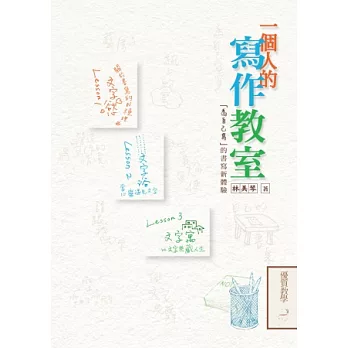 一個人的
寫作教室
「為自己寫」的書寫新體驗
林美琴 著
Lesson 1
文字慾
Lesson 2
文字浴
Lesson 3
文字寓
以文字典藏人生
優質教學